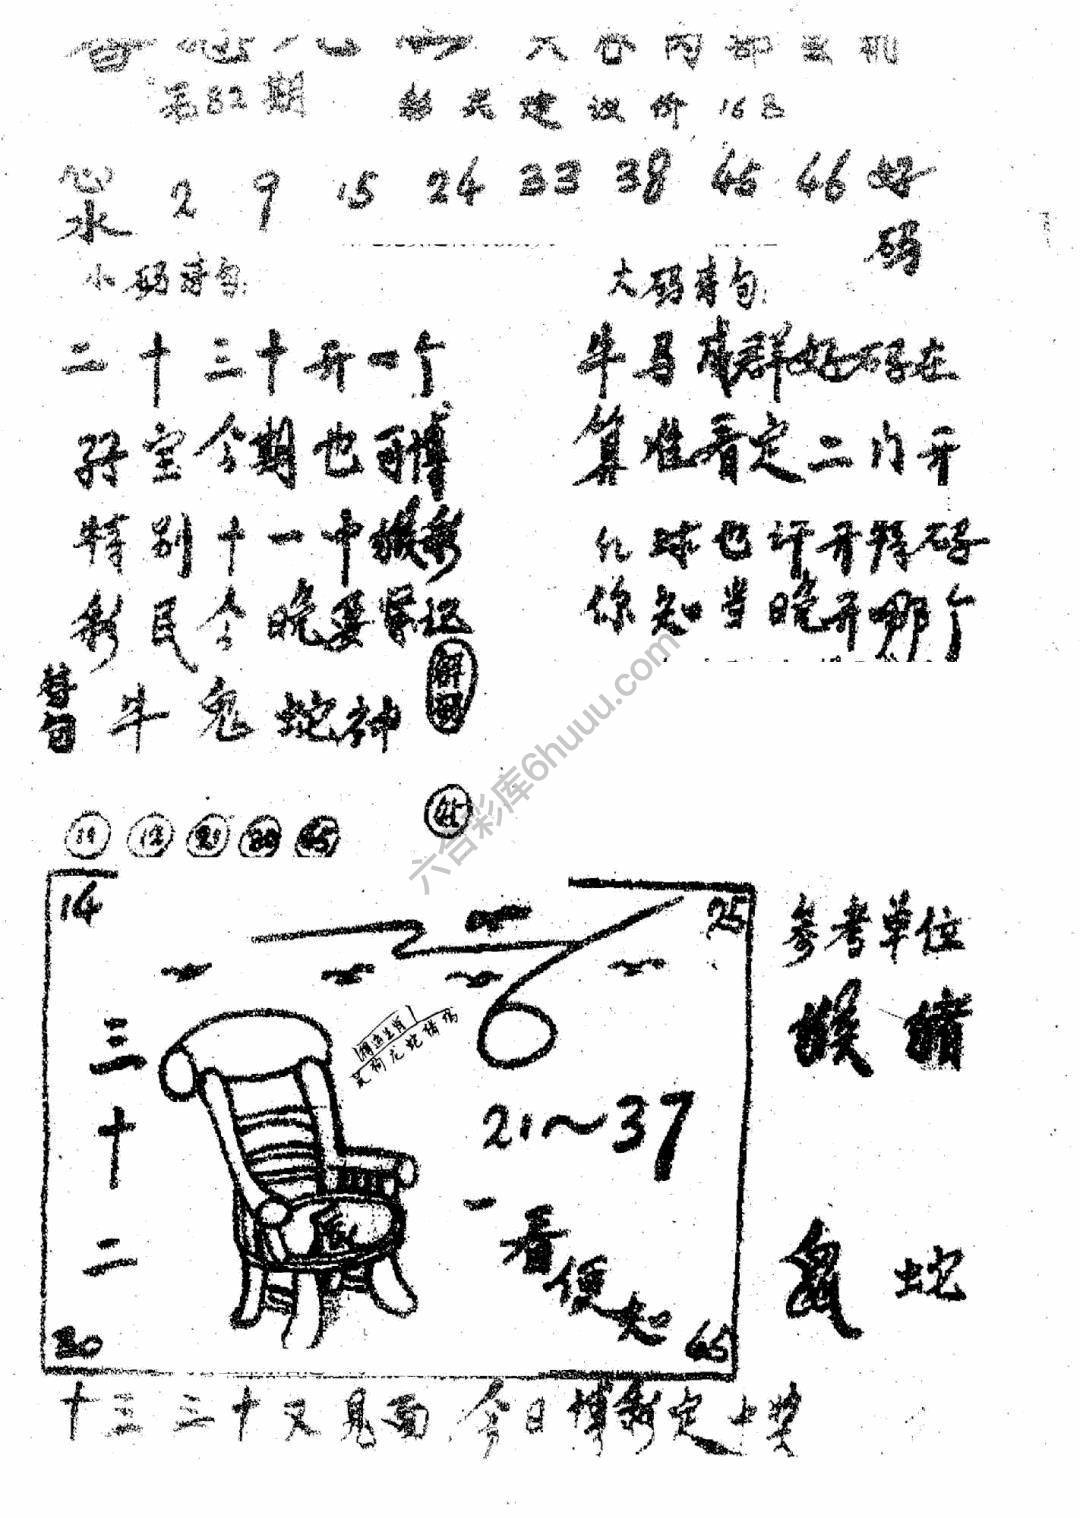 六合内部玄机
第82期
彩民建议价16B
心水 2 9 15 24 33 38 45 46 好码
小码诗句:
大码诗句:
二十三十开一个
牛马成群好码在
孖宝今期也可博
算准看定二门开
特别十一中猴彩
红球也许开特码
彩民今晚要紧记
你知当晚开那个
诗句 牛鬼蛇神
解曰
45
19 12 21 30 45
14
25
参考单位
猴 猪
三十二
21～37
一看便知
鼠 蛇
30
45
十三三十又见面 今日博彩定中奖
六合彩库6huuu.com